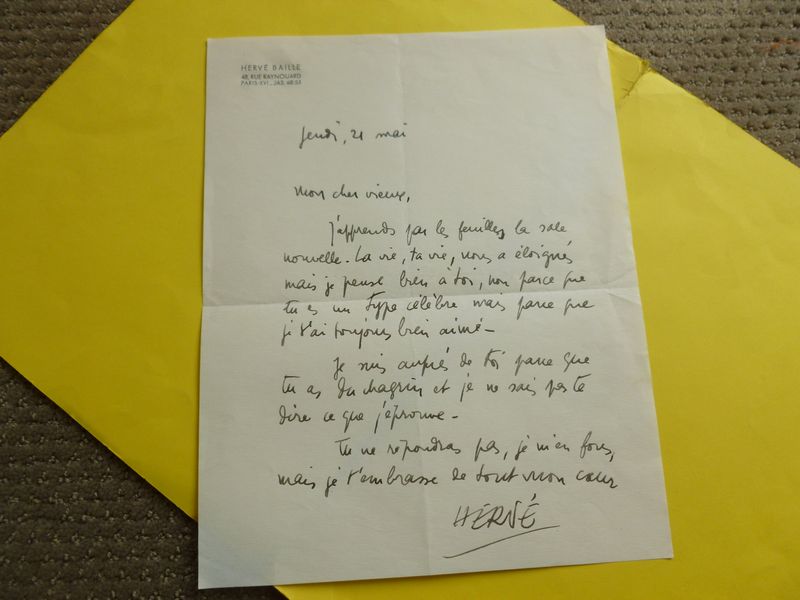 HERVÉ BAILLE
48, RUE RAYNOUARD
PARIS-XVIe - JAS. 68-55
Jeudi, 21 mai
mon cher vieux,
J'apprends par les feuilles, la sale
nouvelle. La vie, ta vie, nous a éloignés
mais je pense bien à toi, non parce que
tu es un type célèbre mais parce que
je t'ai toujours bien aimé -
Je suis auprès de toi parce que
tu as du chagrin et je ne sais pas te
dire ce que j'éprouve -
Tu ne répondras pas, je m'en fous,
mais je t'embrasse de tout mon cœur
HERVÉ